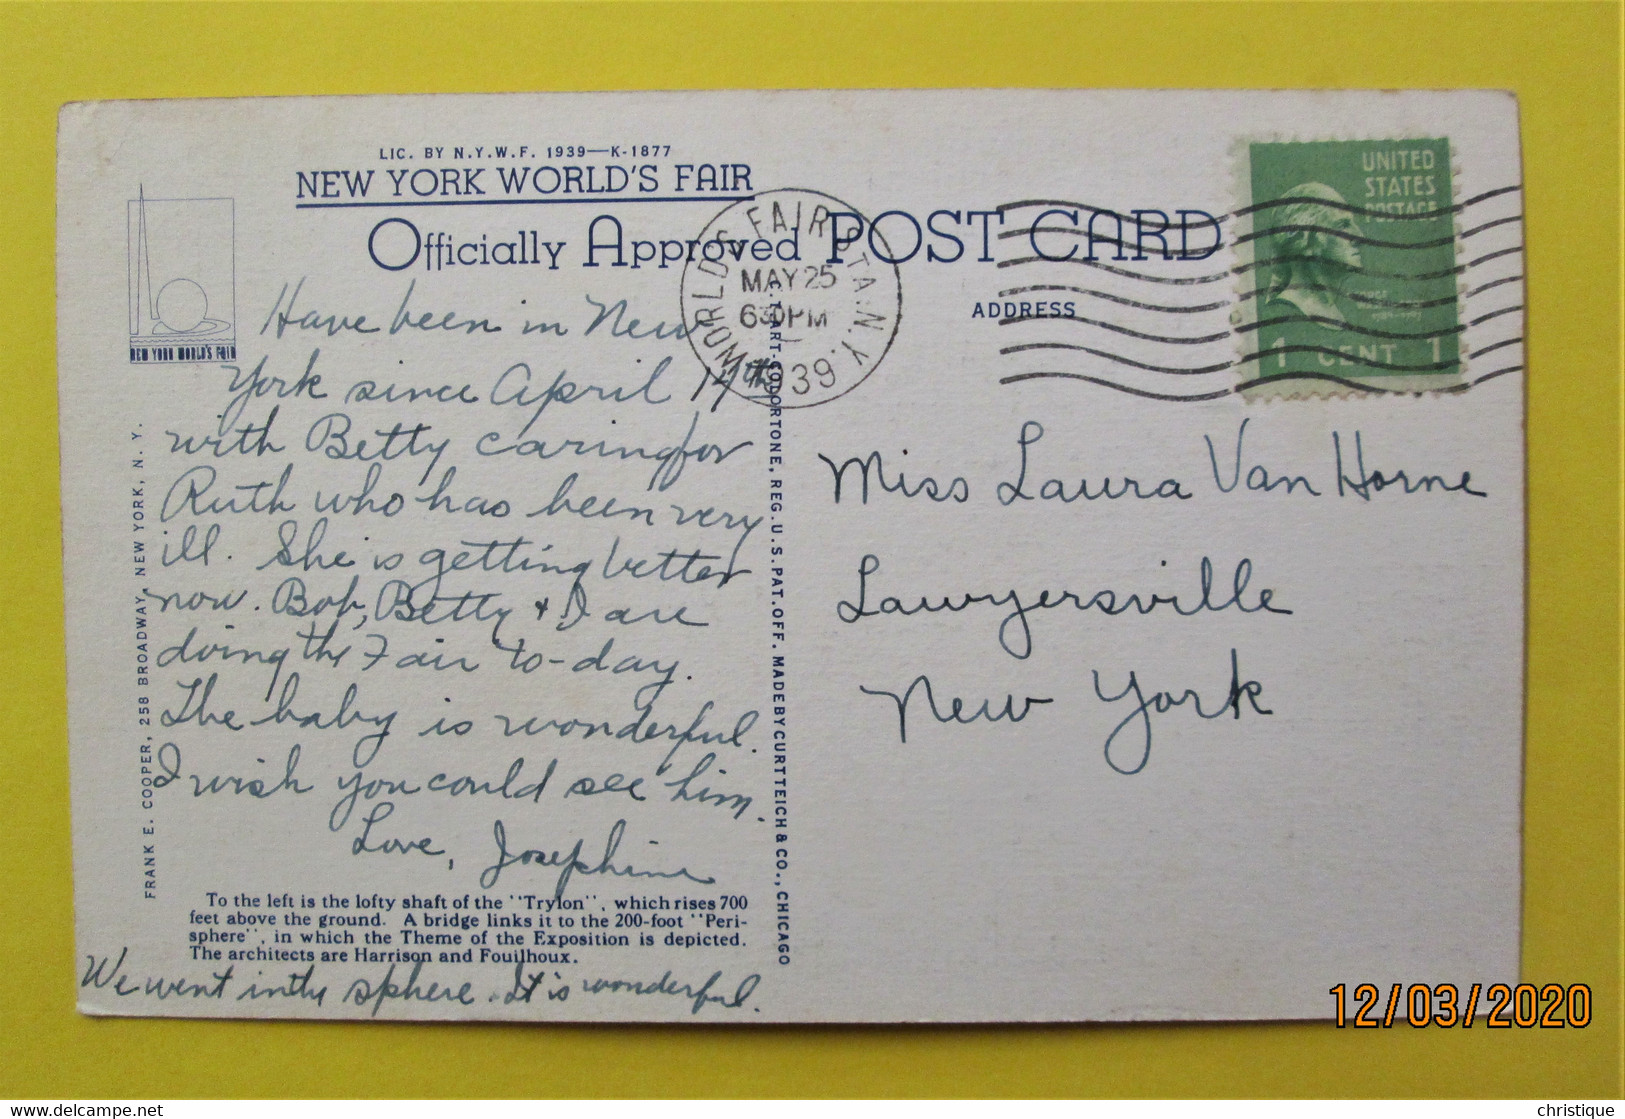 LIC. BY N.Y.W.F. 1939—K-1877
NEW YORK WORLD'S FAIR
Officially Approved POST CARD
NEW YORK WORLD'S FAIR
WORLD'S FAIR STA. N.Y.
MAY 25
630PM
1939
UNITED
STATES
POSTAGE
1 CENT 1
ADDRESS
Have been in New
York since April 17th
with Betty caring for
Ruth who has been very
ill. She is getting better
now. Bob, Betty + I are
doing the Fair to-day.
The baby is wonderful.
I wish you could see him.
Love, Josephine
To the left is the lofty shaft of the "Trylon", which rises 700
feet above the ground. A bridge links it to the 200-foot "Peri-
sphere", in which the Theme of the Exposition is depicted.
The architects are Harrison and Fouilhoux.
We went in the sphere. It is wonderful.
FRANK E. COOPER, 258 BROADWAY, NEW YORK, N. Y.
C.T. ART-COLORTONE, REG. U.S. PAT. OFF. MADE BY CURT TEICH & CO., CHICAGO
Miss Laura Van Horne
Lawyersville
New York
12/03/2020
delcampe.net
christique